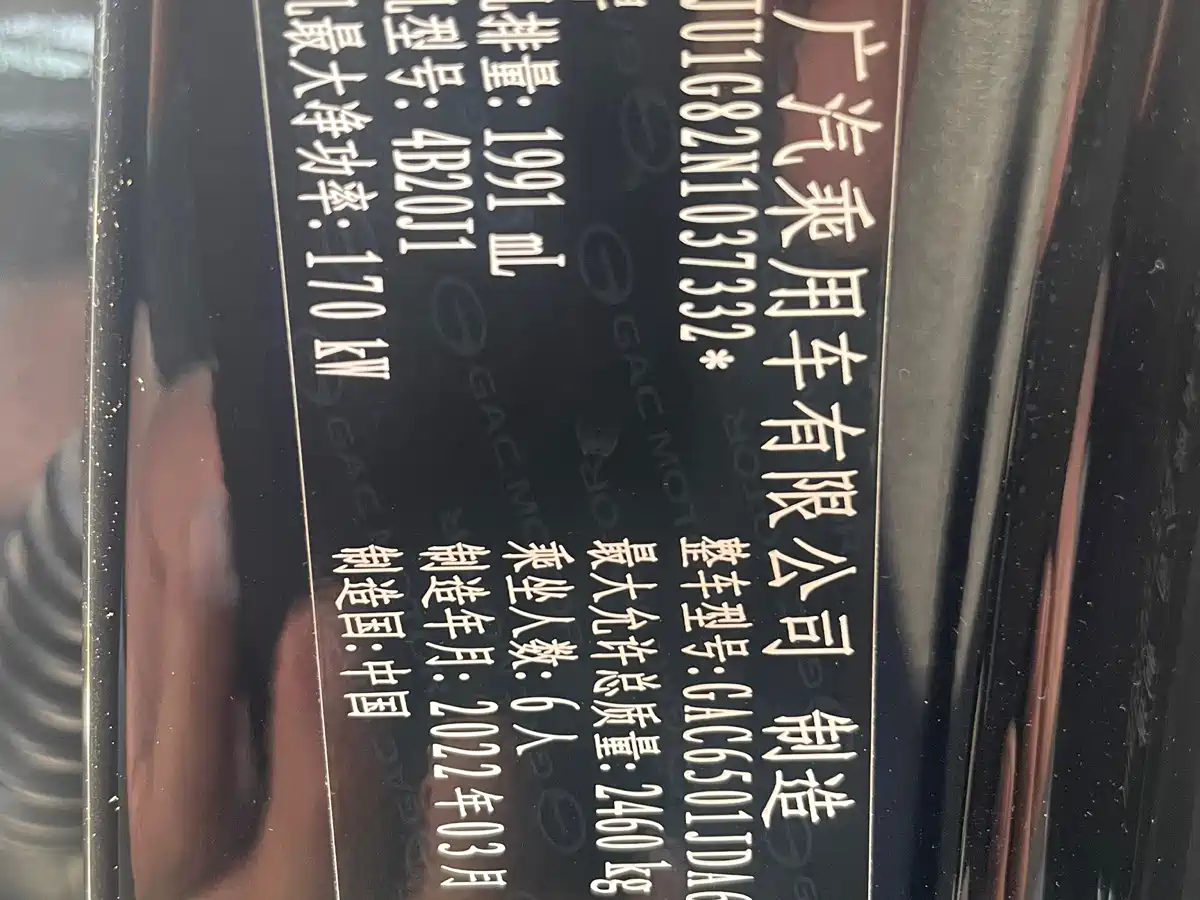 广汽乘用车有限公司 制造
JU1G82N1037332*
整车型号:GAC6501JDA6
最大允许总质量:2460kg
排量:1991 mL
乘坐人数:6人
型号:4B20J1
制造年月:2022年03月
最大净功率:170 kW
制造国:中国
GAC MOTOR
GAC MO
GAC M